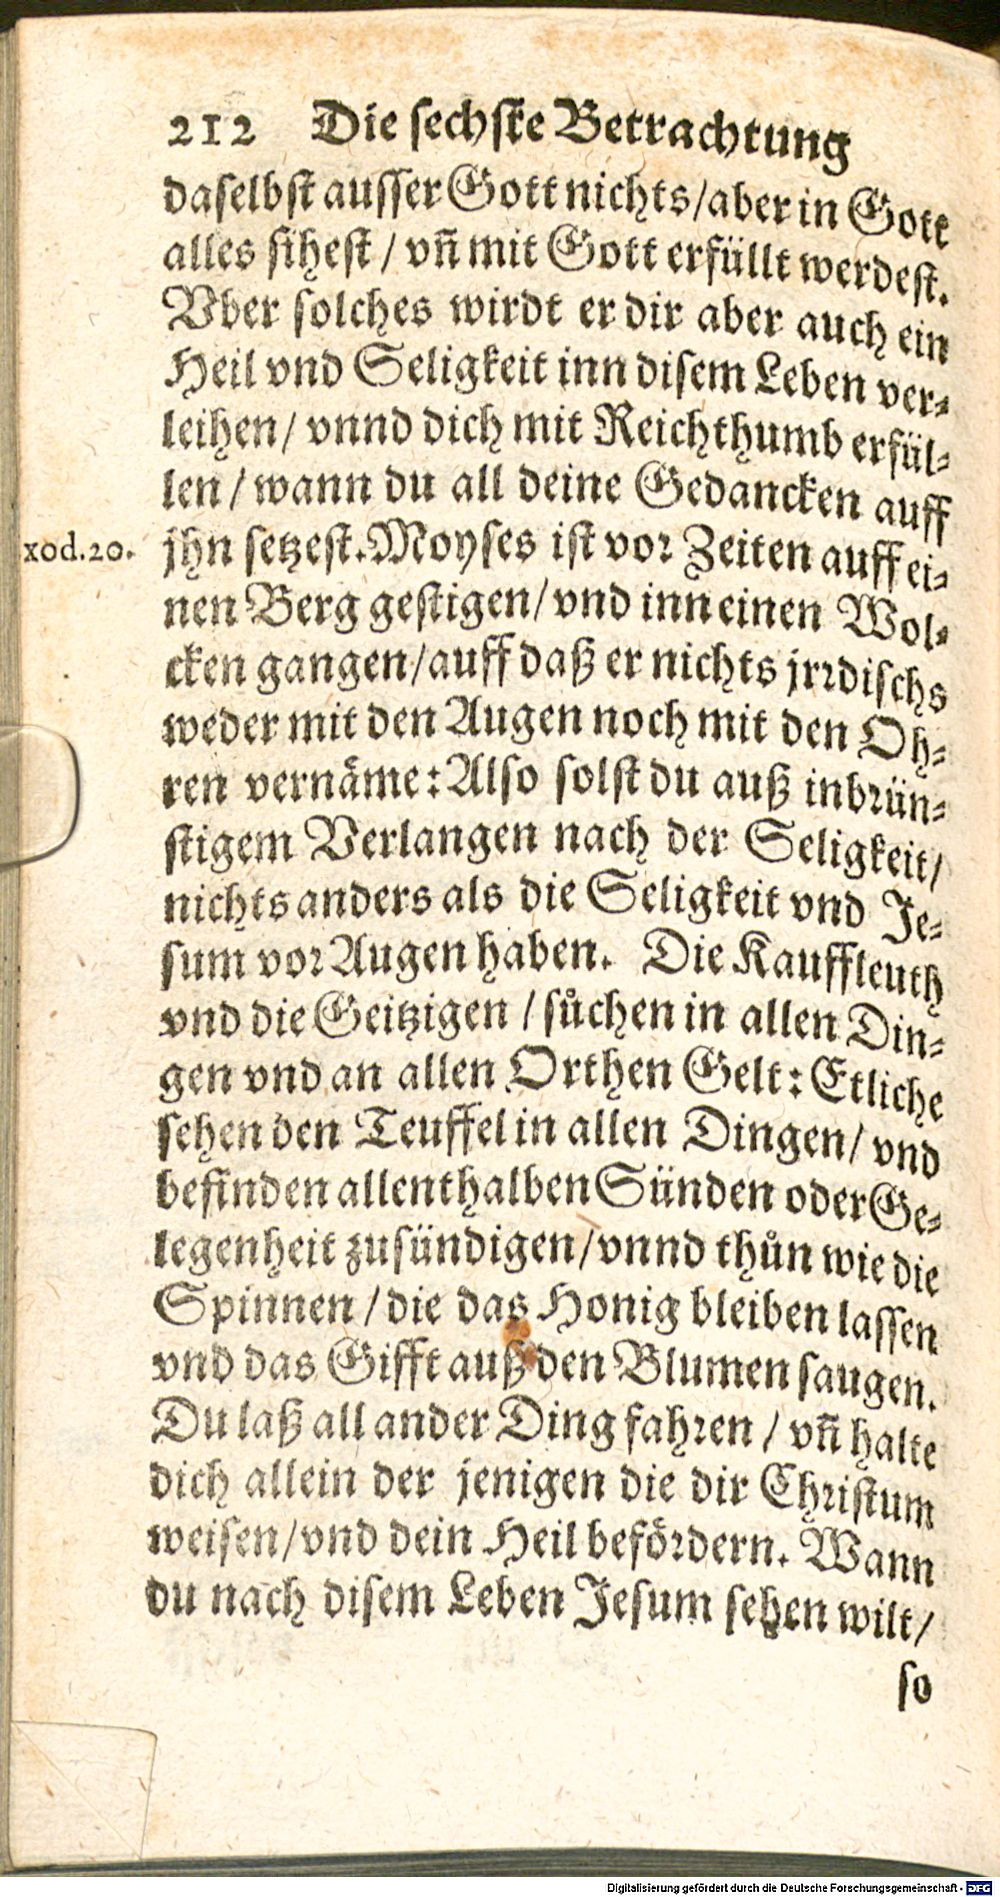 212 Die sechste Betrachtung
daselbst ausser Gott nichts/aber in Gott
alles sihest / vñ mit Gott erfüllt werdest.
Vber solches wirdt er dir aber auch ein
Heil vnd Seligkeit inn disem Leben ver-
leihen/ vnnd dich mit Reichthumb erfül-
len / wann du all deine Gedancken auff
xod.20. jhn setzest. Moyses ist vor Zeiten auff ei-
nen Berg gestigen/ vnd inn einen Wol-
cken gangen/auff daß er nichts jrrdischs
weder mit den Augen noch mit den Oh-
ren vernäme: Also solst du auß inbrün-
stigem Verlangen nach der Seligkeit/
nichts anders als die Seligkeit vnd Je-
sum vor Augen haben. Die Kauffleuth
vnd die Geitzigen / sůchen in allen Din-
gen vnd an allen Orthen Gelt: Etliche
sehen den Teuffel in allen Dingen/ vnd
befinden allenthalben Sünden oder Ge-
legenheit zusündigen/vnnd thůn wie die
Spinnen / die das Honig bleiben lassen
vnd das Gifft auß den Blumen saugen.
Du laß all ander Ding fahren / vñ halte
dich allein der jenigen die dir Christum
weisen/vnd dein Heil befördern. Wann
du nach disem Leben Jesum sehen wilt/
so
Digitalisierung gefördert durch die Deutsche Forschungsgemeinschaft - DFG